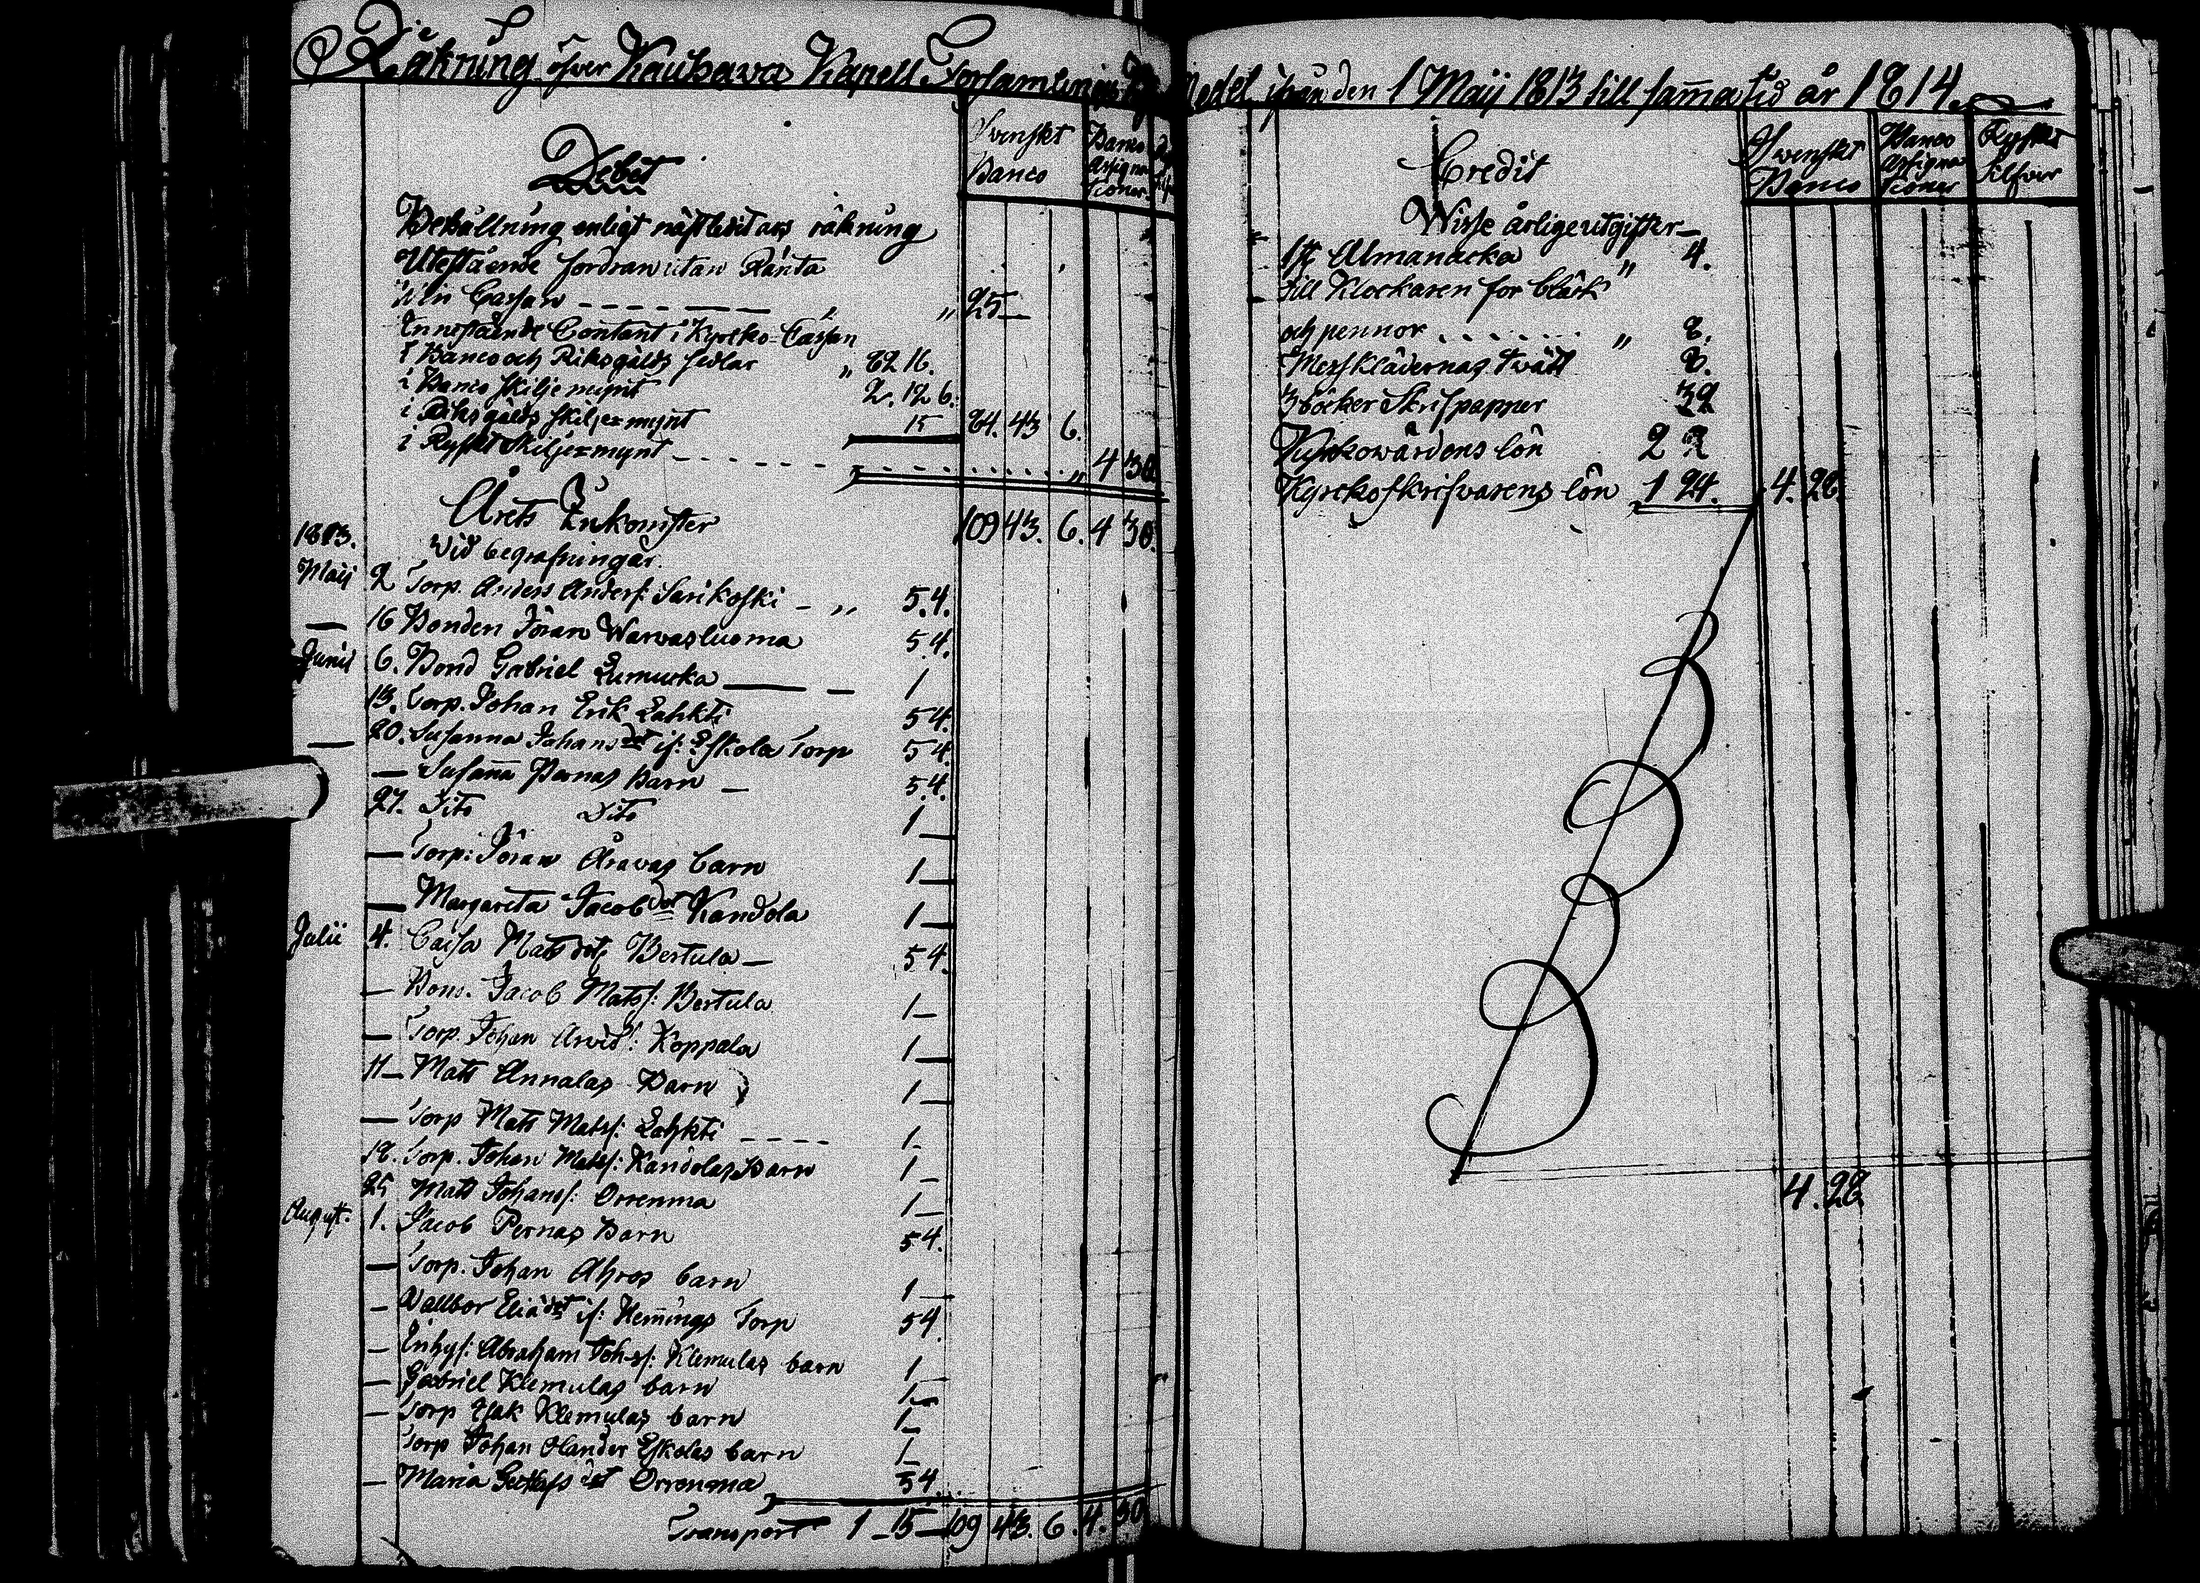 Räkning öfver Kauhava Kapell Församlings Medel ifrån den 1 Maij 1813 till samma tid år 1814.
Debet
Svenskt Banco
Banco Assignationer
Behållning enligt näst ledit års räkning
Utestående fordran utan Ränta
in Cassan - - - - " 25 —
Innestående Contant i Kyrko-Cassan
i Banco och Riksgälds sedlar " 82 16.
i Banco skiljemynt 2. 12 6.
i Riksgälds skiljemynt 15 84. 43 6.
i Ryskt Skiljemynt - - - - " 4 30
Årets Inkomster 109 43. 6. 4 30.
1813. Wid begrafningar.
Maij 2 Torp. Anders Anderss: Sarikoski - " 5.4.
— 16 Bonden Jöran Warvasluoma 5.4.
Junii 6. Bond Gabriel Lumucka — — 1
13. Torp. Johan Erik Lahkti 5 4.
— 20. Susanna Johansdot if: Eskola Torp 5 4.
— Susanna Pernas Barn — 5.4.
27. Dito Dito 1 —
— Torp: Jöran Aravas barn 1 —
— Margareta Jacobdot Kandola 1 —
Julii 4. Caisa Matsdot Bertula — 5 4.
— Bond. Jacob Matss: Bertula 1 —
— Torp. Johan Arvid: Koppala 1 —
11 — Matts Annalas Barn 1 —
— Torp Matts Matss: Lahkti - - - - 1 -
18. Torp. Johan Matss: Kandolas Barn 1 —
25 Matts Johanss: Orrenma 1 —
August. 1. Jacob Pernas Barn 5 4.
— Torp. Johan Ahros barn 1 —
— Wallbor Eliædot if: Hemmings Torp 5 4.
— Inhys: Abraham Joh-s: Klemulas barn 1 —
— Gabriel Klemulas barn 1 —
— Torp Isak Klemulas barn 1 —
Torp Johan Olander Eskolas barn 1 —
— Maria dot Orrenma 5 4.
Transport 1 — 15 — 109 43. 6. 4. 30
Credit
Svenskt Banco
Banco Assignationer
Ryskt Silfver
Wisse årlige utgifter —
1 st Almanacka " 4.
till Klockaren för bläck
och pennor . . . . . . " 8.
Messklädernas twätt 8.
3 böcker Skrifpapper 32
Kyrkowärdens lön 2 2
Kyrckoskrifvarens lön 1 24. 4. 28.
4. 28